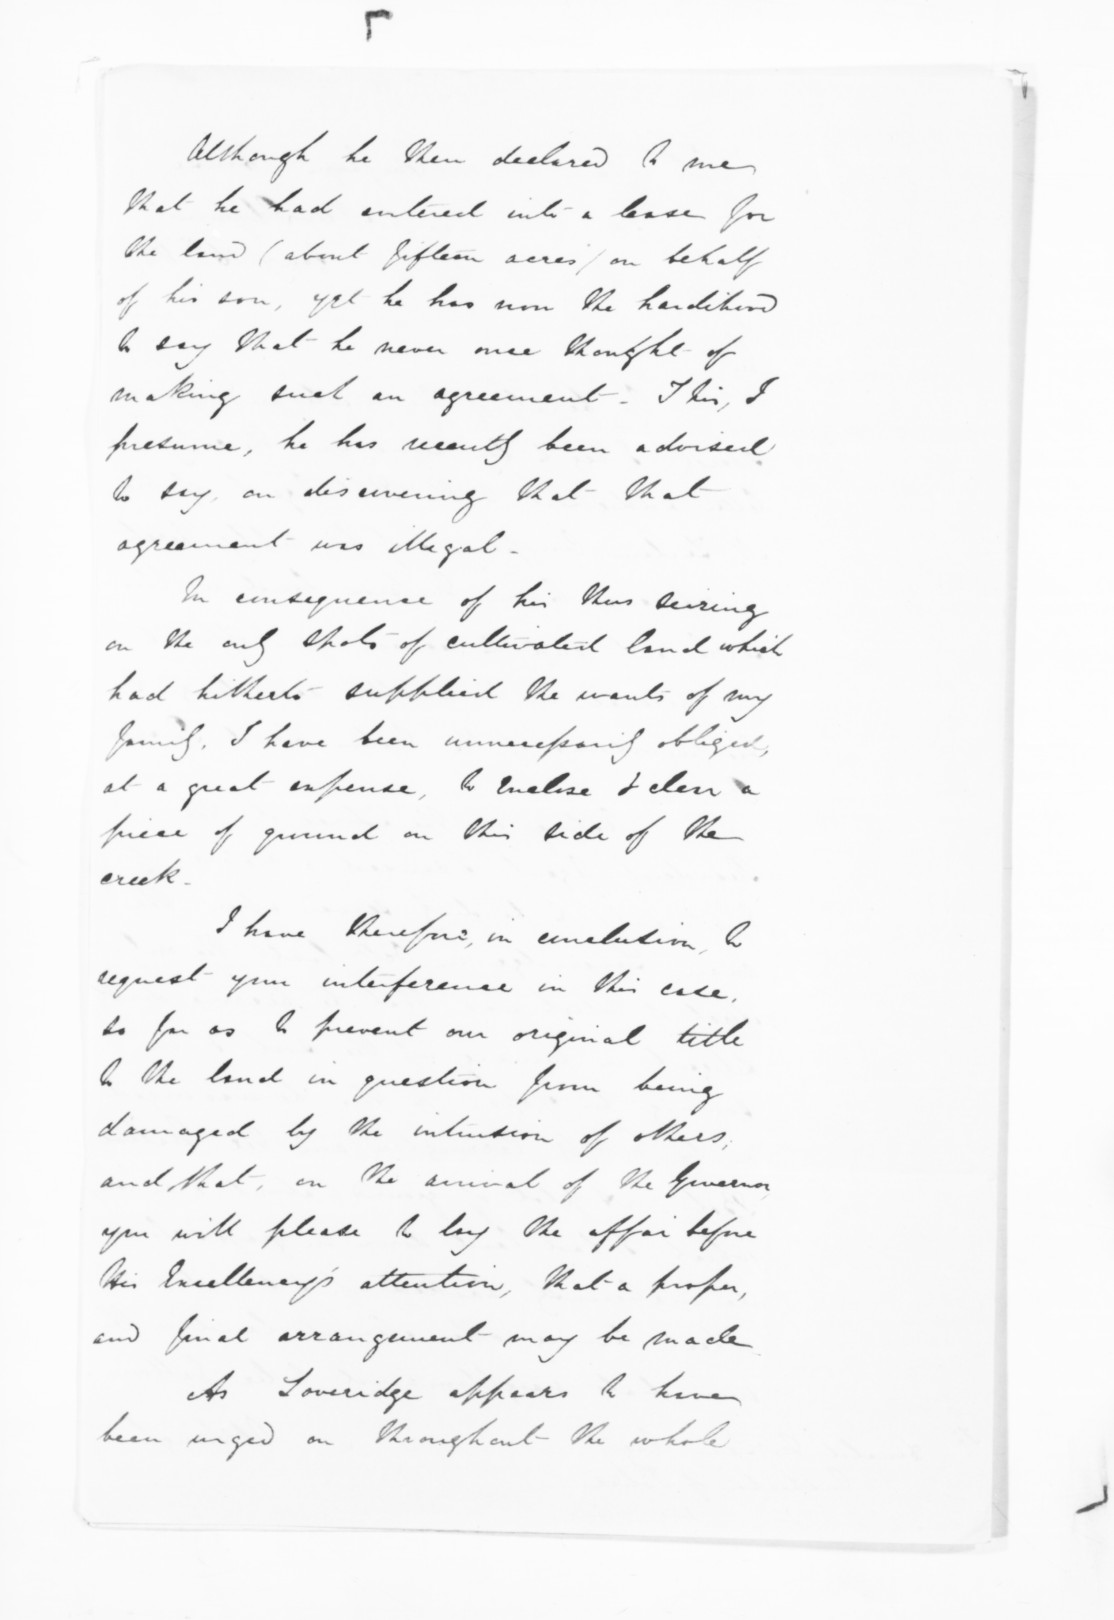 Although he then declared to me
that he had entered into a lease for
the land (about fifteen acres) on behalf
of his son, yet he has now the hardihood
to say that he never once thought of
making such an agreement - This, I
presume, he has recently been advised
to say, on discovering that that
agreement was illegal -
In consequence of his thus seizing
on the only spots of cultivated land which
had hitherto supplied the wants of my
family, I have been unnecessarily obliged,
at a great expense, to enclose & clear a
piece of ground on this side of the
creek -
I have therefore, in conclusion, to
request your interference in this case,
so far as to prevent our original title
to the land in question from being
damaged by the intrusion of others;
and that, on the arrival of the Governor,
you will please to lay the affair before
His Excellency's attention, that a proper,
and final arrangement may be made.
As Loveridge appears to have
been urged on throughout the whole